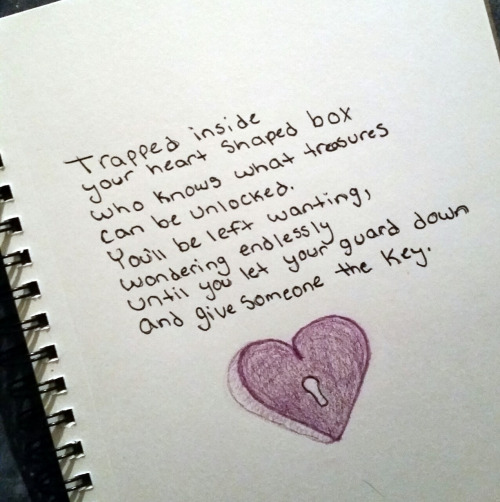 Trapped inside
your heart shaped box
who knows what treasures
can be unlocked.
You'll be left wanting,
wondering endlessly
until you let your guard down
and give someone the key.